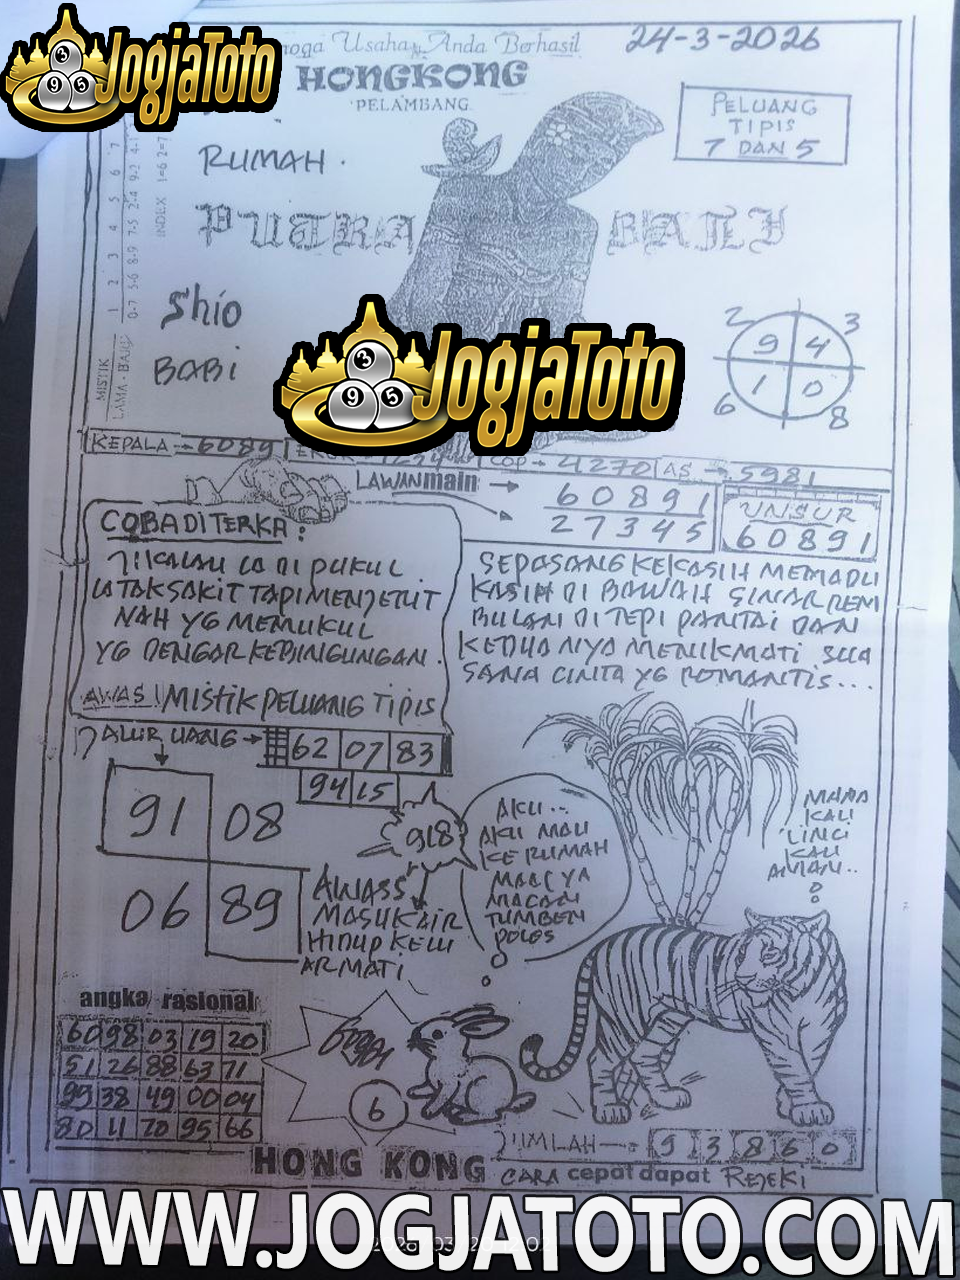 JogjaToto
Usaha Anda Berhasil
24-3-2026
HONGKONG
PELAMBANG
PELUANG
TIPIS
7 DAN 5
RUMAH
PUTRA BALI
Shio
BABI
MISTIK
LAMA - BARU
INDEX
JogjaToto
2 3
9 4
1 0
6 8
KEPALA → 6089
COP → 4270 AS → 5981
LAWAN main → 60891
27345
UNSUR
60891
COBA DITERKA :
JIKALAU IA DI PUKUL
IA TAK SAKIT TAPI MENJERIT
NAH YG MEMUKUL
YG DENGAR KEBINGUNGAN.
AWAS! MISTIK PELUANG TIPIS
SEPASANG KEKASIH MEMADU
KASIH DI BAWAH SINAR REM
BULAN DI TEPI PANTAI DAN
KEDUANYA MENIKMATI SUA
SANA CINTA YG ROMANTIS...
JALUR UANG → 62 07 83
94 15
91 08
06 89
918
AWASS
MASUK AIR
HIDUP KELU
AR MATI
AKU..
AKU MAU
KE RUMAH
MACAN
TUMBEN
POLOS
MANA
KAU
KAU
angka rasional
60 98 03 19 20
51 26 88 63 71
93 38 49 00 04
80 11 70 95 66
6
JUMLAH → 9 3 8 6 0
HONG KONG
CARA cepat dapat REJEKI
WWW.JOGJATOTO.COM